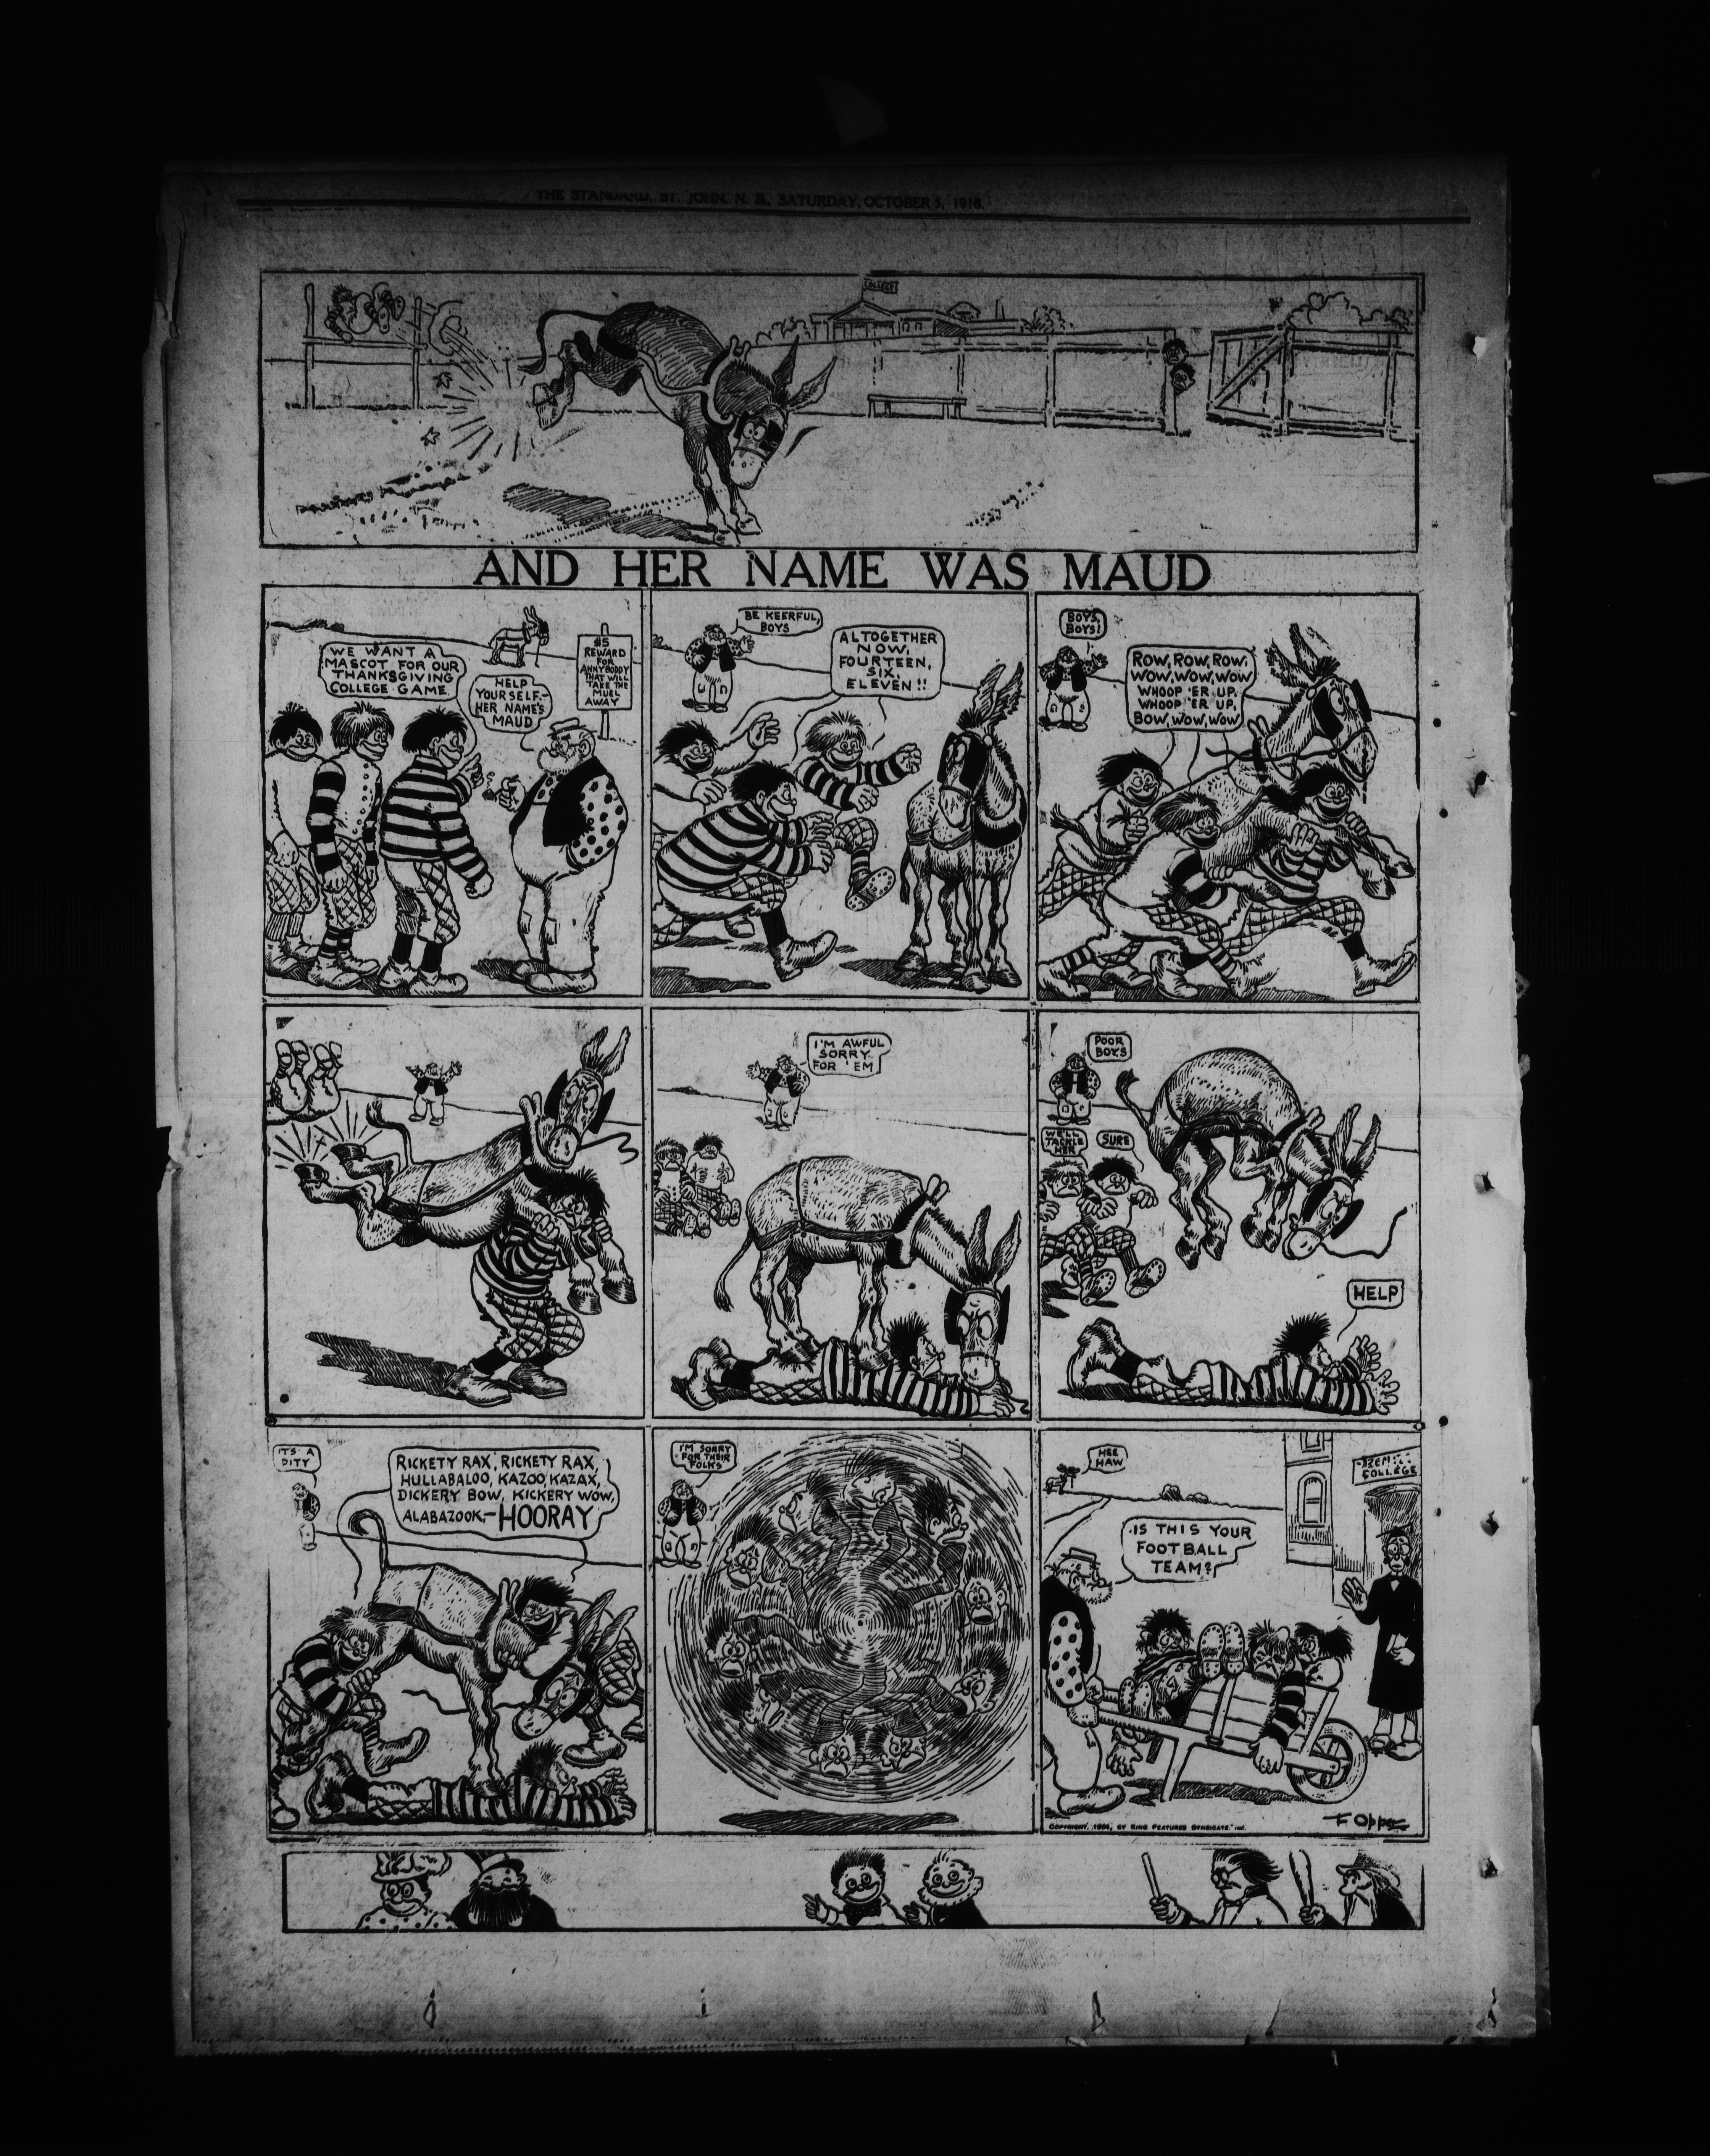 THE STANDARD, ST. JOHN, N. B., SATURDAY, OCTOBER 5, 1918.
COLLEGE
AND HER NAME WAS MAUD
WE WANT A
MASCOT FOR OUR
THANKSGIVING
COLLEGE GAME
HELP
YOURSELF-
HER NAME'S
MAUD
$5
REWARD
FOR
ANNYBODDY
THAT WILL
TAKE THE
MUEL
AWAY
BE KEERFUL,
BOYS
ALTOGETHER
NOW,
FOURTEEN,
SIX,
ELEVEN!!
BOYS,
BOYS!
ROW, ROW, ROW,
WOW, WOW, WOW
WHOOP 'ER UP,
WHOOP 'ER UP,
BOW, WOW, WOW
I'M AWFUL
SORRY
FOR 'EM
POOR
BOYS
WE'LL
TACKLE
HER
SURE
HELP
IT'S A
PITY
RICKETY RAX, RICKETY RAX,
HULLABALOO, KAZOO, KAZAX,
DICKERY BOW, KICKERY WOW,
ALABAZOOK,- HOORAY
I'M SORRY
FOR THEIR
FOLKS
HEE
HAW
COLLEGE
IS THIS YOUR
FOOTBALL
TEAM?
COPYRIGHT, BY KING FEATURES SYNDICATE, INC.
F OPPER